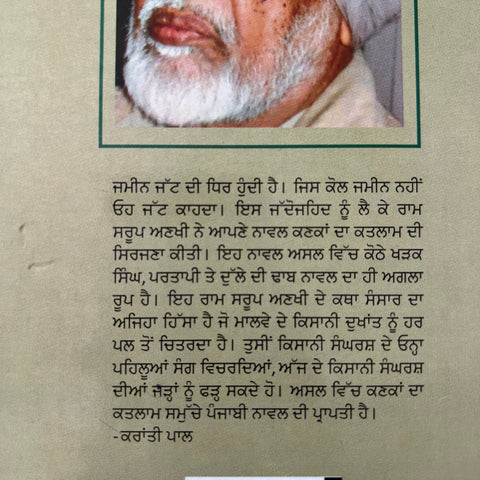 ਜਮੀਨ ਜੱਟ ਦੀ ਧਿਰ ਹੁੰਦੀ ਹੈ। ਜਿਸ ਕੋਲ ਜਮੀਨ ਨਹੀਂ
ਓਹ ਜੱਟ ਕਾਹਦਾ। ਇਸ ਜੱਦੋਜਹਿਦ ਨੂੰ ਲੈ ਕੇ ਰਾਮ
ਸਰੂਪ ਅਣਖੀ ਨੇ ਆਪਣੇ ਨਾਵਲ ਕਣਕਾਂ ਦਾ ਕਤਲਾਮ ਦੀ
ਸਿਰਜਣਾ ਕੀਤੀ। ਇਹ ਨਾਵਲ ਅਸਲ ਵਿੱਚ ਕੋਠੇ ਖੜਕ
ਸਿੰਘ, ਪਰਤਾਪੀ ਤੇ ਦੁੱਲੇ ਦੀ ਢਾਬ ਨਾਵਲ ਦਾ ਹੀ ਅਗਲਾ
ਰੂਪ ਹੈ। ਇਹ ਰਾਮ ਸਰੂਪ ਅਣਖੀ ਦੇ ਕਥਾ ਸੰਸਾਰ ਦਾ
ਅਜਿਹਾ ਹਿੱਸਾ ਹੈ ਜੋ ਮਾਲਵੇ ਦੇ ਕਿਸਾਨੀ ਦੁਖਾਂਤ ਨੂੰ ਹਰ
ਪਲ ਤੋਂ ਚਿਤਰਦਾ ਹੈ। ਤੁਸੀਂ ਕਿਸਾਨੀ ਸੰਘਰਸ਼ ਦੇ ਓਨ੍ਹਾ
ਪਹਿਲੂਆਂ ਸੰਗ ਵਿਚਰਦਿਆਂ, ਅੱਜ ਦੇ ਕਿਸਾਨੀ ਸੰਘਰਸ਼
ਦੀਆਂ ਜੜ੍ਹਾਂ ਨੂੰ ਫੜ੍ਹ ਸਕਦੇ ਹੋ। ਅਸਲ ਵਿੱਚ ਕਣਕਾਂ ਦਾ
ਕਤਲਾਮ ਸਮੁੱਚੇ ਪੰਜਾਬੀ ਨਾਵਲ ਦੀ ਪ੍ਰਾਪਤੀ ਹੈ।
-ਕਰਾਂਤੀ ਪਾਲ